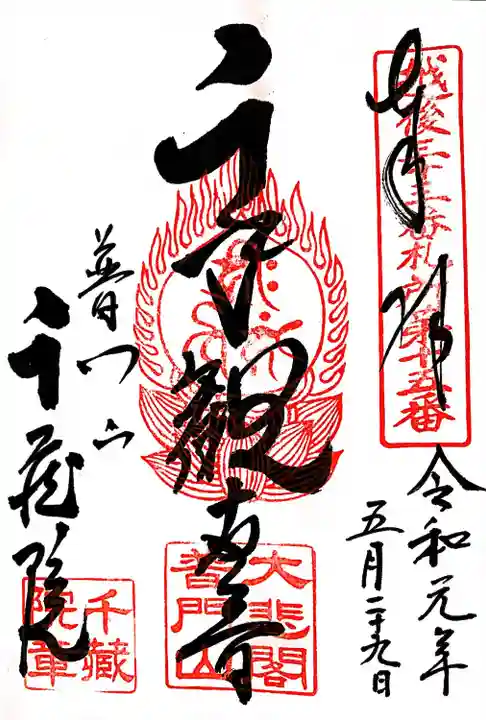 奉拝
越後三十三番札所第十五番
令和元年
五月二十九日
聖観世音
大悲閣
普門山
普門山
千蔵院
千藏
院章